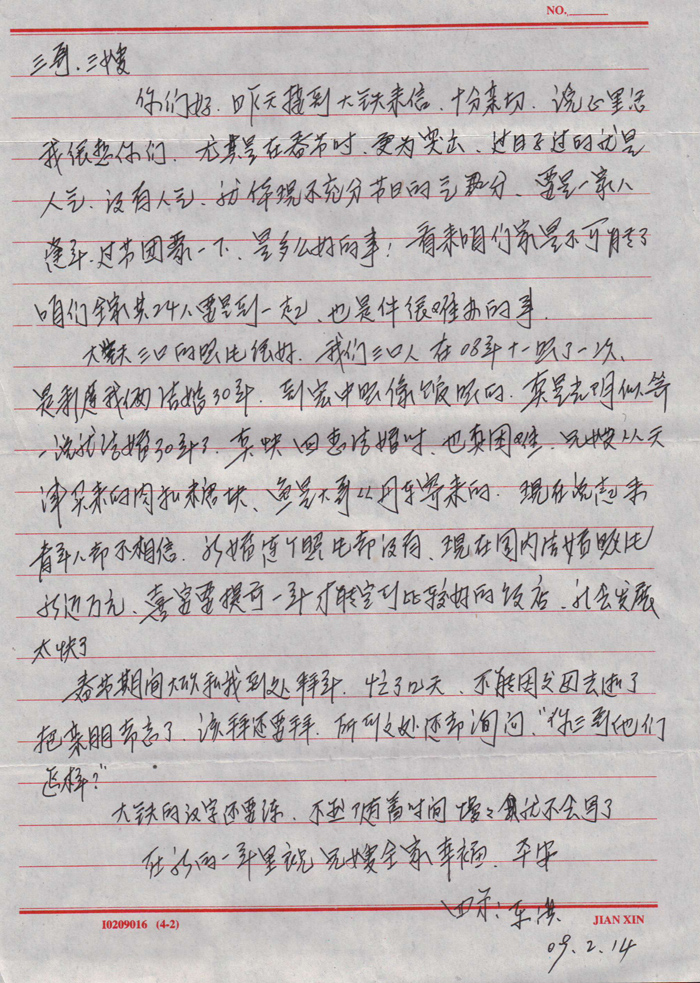 NO.
三哥.三嫂
你们好.昨天接到大铁来信.十分亲切.说心里话
我很想你们.尤其是在春节时.更为突出.过日子过的就是
人气.没有人气.就体现不充分节日的气氛.要是一家人
逢年.过节团聚一下.是多么好的事!看来咱们家是不可能了
咱们全家共24人要是到一起、也是件很难办的事.
大铁三口的照片很好.我们三口人在08年十一照了一次、
是利是我俩结婚30年.到宏中照像馆照的.真是光阴似箭
一说就结婚30年了.真快 回忆结婚时.也真困难.兄嫂从天
津买来的肉和糖块、鱼是大哥从丹东带来的.现在说起来
青年人却不相信.新婚连个照片却没有.现在国内结婚照片
就近万元.喜宴要提前一年才能定到比较好的饭店.社会发展
太快了
春节期间大队和我到处拜年.忙了12天.不能因父母去逝了
把亲朋都忘了.该拜还要拜.所到之处还都询问."你三哥他们
怎样?"
大铁的汉字还要练.不然随着时间 慢々就不会写了
在新的一年里祝兄嫂全家幸福.平安
四弟:东洪
09.2.14
I0209016 (4-2)
JIAN XIN